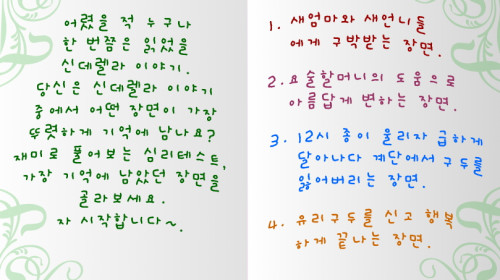 어렸을 적 누구나
한 번쯤은 읽었을
신데렐라 이야기.
당신은 신데렐라 이야기
중에서 어떤 장면이 가장
뚜렷하게 기억에 남나요?
재미로 풀어보는 심리테스트,
가장 기억에 남았던 장면을
골라보세요.
자 시작합니다~.
1. 새엄마와 새언니들
에게 구박받는 장면.
2. 요술할머니의 도움으로
아름답게 변하는 장면.
3. 12시 종이 울리자 급하게
달아나다 계단에서 구두를
잃어버리는 장면.
4. 유리구두를 신고 행복
하게 끝나는 장면.